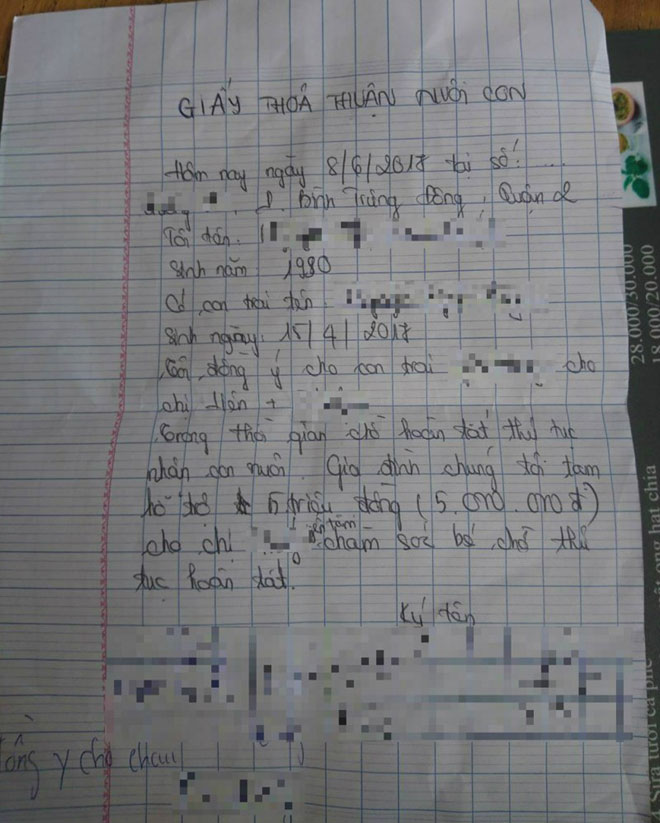 GIẤY THOẢ THUẬN NUÔI CON
Hôm nay ngày 8/6/2017 tại số:.....
Bình Trưng Đông, Quận 2
Tôi tên:
Sinh năm: 1980
Có con trai tên
Sinh ngày: 15/4/2017
Tôi đồng ý cho con trai cho
chị Hiền +
Trong thời gian chờ hoàn tất thủ tục
nhận con nuôi. Gia đình chúng tôi tạm
hỗ trợ 5 triệu đồng (5.000.000đ)
cho chị chăm sóc bé, chờ thủ
tục hoàn tất.
Ký tên
ông ý cho cháu
28.000/30.000
18.000/20.000
ong hạt chia
Sữa tươi cà phê